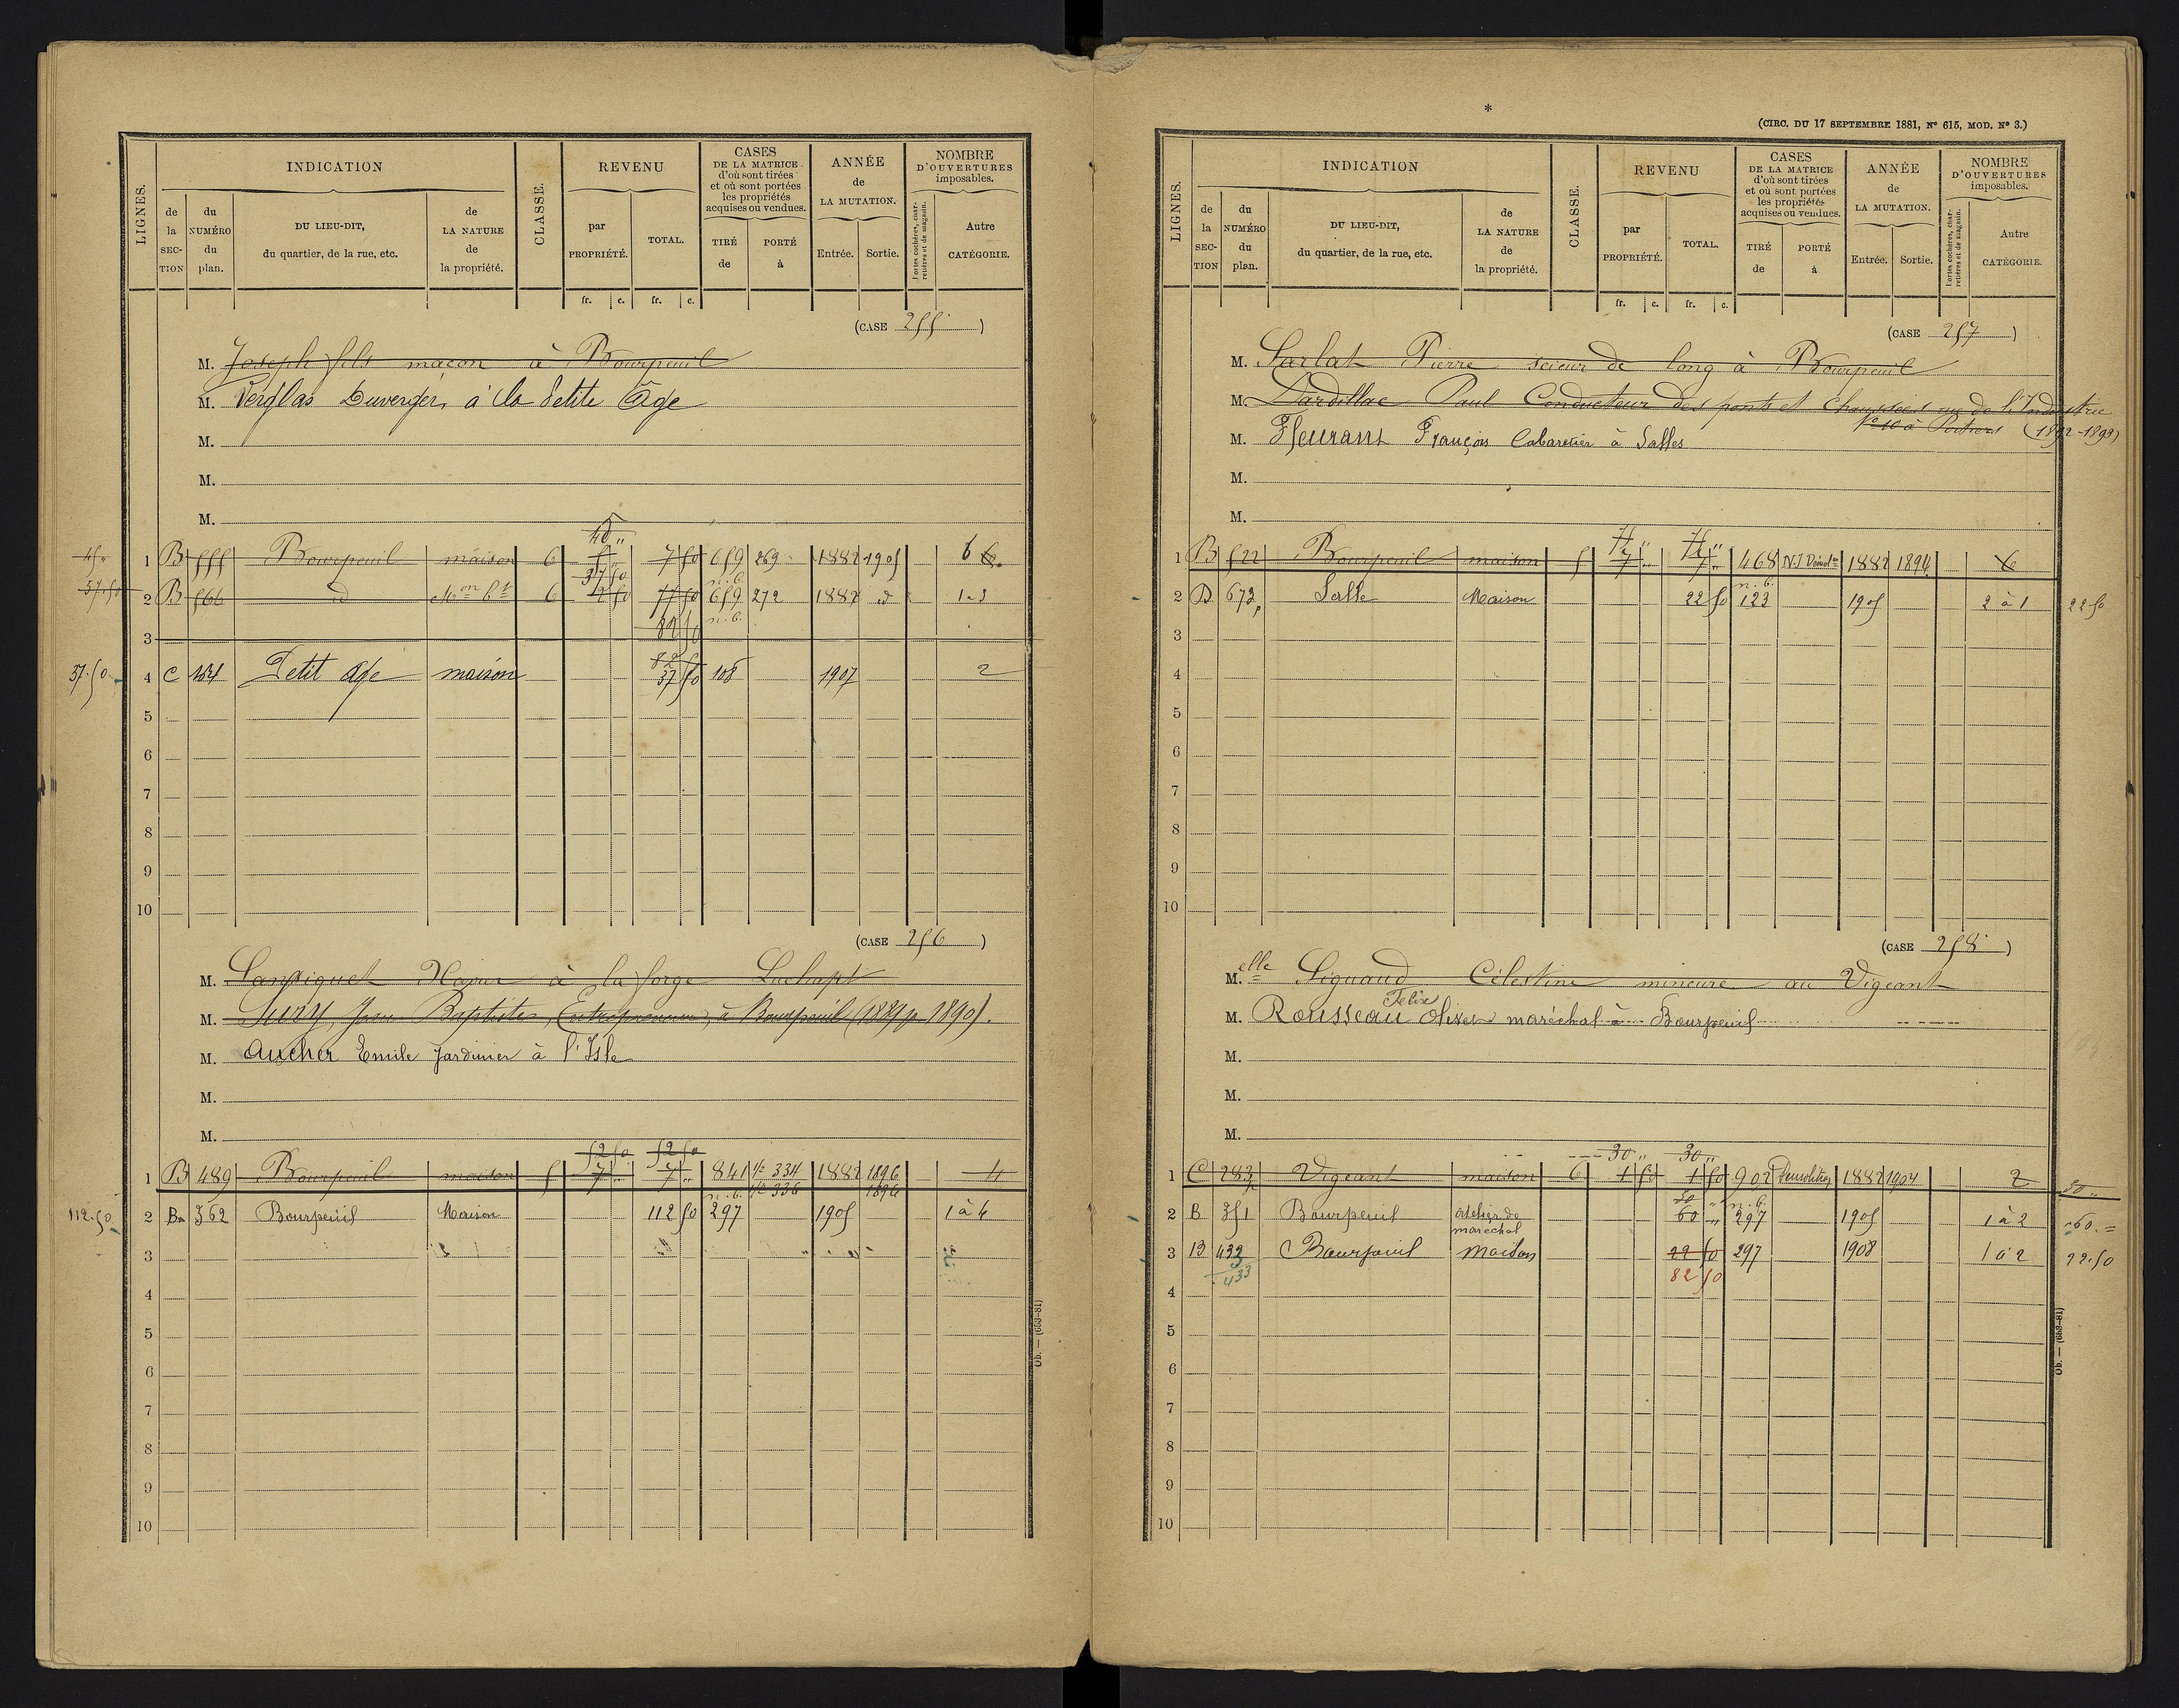 LIGNES.
INDICATION
CLASSE.
REVENU
CASES
DE LA MATRICE
d'où sont tirées
et où sont portées
les propriétés
acquises ou vendues.
ANNÉE
de
LA MUTATION.
NOMBRE
D'OUVERTURES
imposables.
de la SECTION
du NUMÉRO du plan.
DU LIEU-DIT,
du quartier, de la rue, etc.
de LA NATURE de la propriété.
par PROPRIÉTÉ.
TOTAL.
TIRÉ de
PORTÉ à
Entrée.
Sortie.
Portes cochères, charretières et de magasin.
Autre CATÉGORIE.
fr. c. fr. c.
(CASE 255)
M. Joseph fils maçon à Bourpeuil
M. Verglas Duverger, à la Petite Age
M.
M.
M.
1 B 555 Bourpeuil maison 6 7 50 659 269 1882 1905 6
37 50
57.50 2 B 566 d 6 659 272 1882 d 1-3
n.b.
3 82 50
37.50 4 C 154 Petit Age maison 37 50 108 1907 2
5
6
7
8
9
10
(CASE 256)
M. à la forge Luchapt
M. Jean Baptiste, Entrepreneur, à Bourpeuil (1889 p. 1890).
M. Aucher Emile Jardinier à l'Isle
M.
M.
52 50 52 50
1 B 489 Bourpeuil maison 5 7 " 7 " 841 1/2 334 1882 1896 4
n.b. 1/2 336 1896
112.50 2 B 362 Bourpeuil Maison 112 50 297 1905 1 à 4
3
4
5
6
7
8
9
10
Ob. — (653-81)
*
(CIRC. DU 17 SEPTEMBRE 1881, N° 615, MOD. N° 3.)
LIGNES.
INDICATION
CLASSE.
REVENU
CASES
DE LA MATRICE
d'où sont tirées
et où sont portées
les propriétés
acquises ou vendues.
ANNÉE
de
LA MUTATION.
NOMBRE
D'OUVERTURES
imposables.
de la SECTION
du NUMÉRO du plan.
DU LIEU-DIT,
du quartier, de la rue, etc.
de LA NATURE de la propriété.
par PROPRIÉTÉ.
TOTAL.
TIRÉ de
PORTÉ à
Entrée.
Sortie.
Portes cochères, charretières et de magasin.
Autre CATÉGORIE.
fr. c. fr. c.
(CASE 257)
M. Sarlat Pierre scieur de long à Bourpeuil
M. Dardillac Paul Conducteur des ponts et Chaussées rue de l'Industrie
N° 10 à Poitiers (1892-1893)
M. Fleurant François Cabaretier à Salles
M.
M.
1 B 522 Bourpeuil maison 5 7 " 7 " 468 1882 1894 6
n.b.
2 D 673p Salle Maison 22 50 123 1905 2 à 1 22 50
3
4
5
6
7
8
9
10
(CASE 258)
M.elle Signaud Célestine mineure au Vigeant
Felix
M. Rousseau Oliver maréchal à Bourpeuil
M.
M.
M.
30 " 30 "
1 C 283 Vigeant maison 6 1 50 1 50 902 Démolition 1882 1904 2
30 " n.b. 30 "
2 B 351 Bourpeuil atelier de 60 " 297 1905 1 à 2 60. =
maréchal
3 B 432 Bourpeuil maison 22 50 297 1908 1 à 2 22.50
433 82 50
4
5
6
7
8
9
10
Ob. — (653-81)